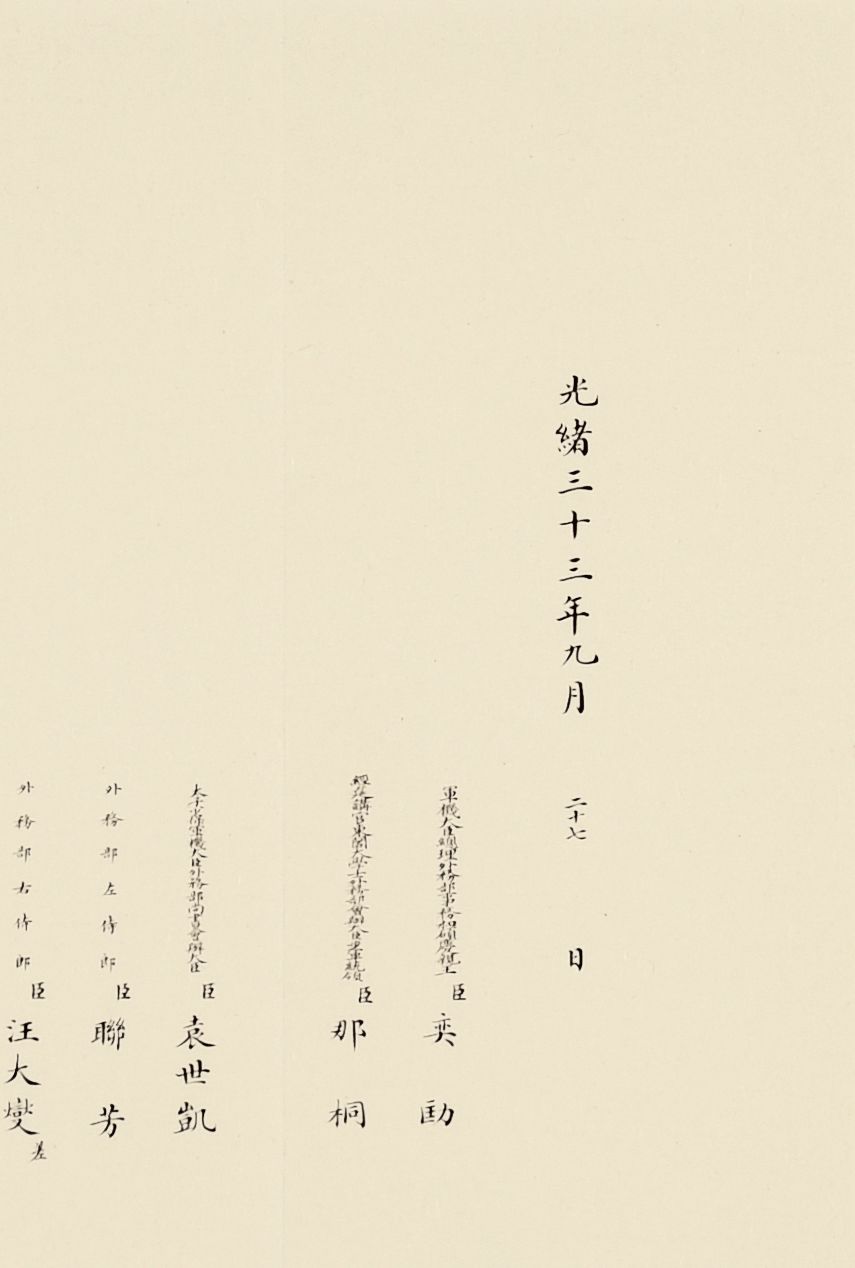 光緒三十三年九月二十七日
軍機大臣總理外務部事務和碩慶親王臣奕劻
經筵講官東閣大學士外務部會辦大臣步軍統領臣那桐
太子少保軍機大臣外務部尚書會辦大臣臣袁世凱
外務部左侍郎臣聯芳
外務部右侍郎臣汪大燮差